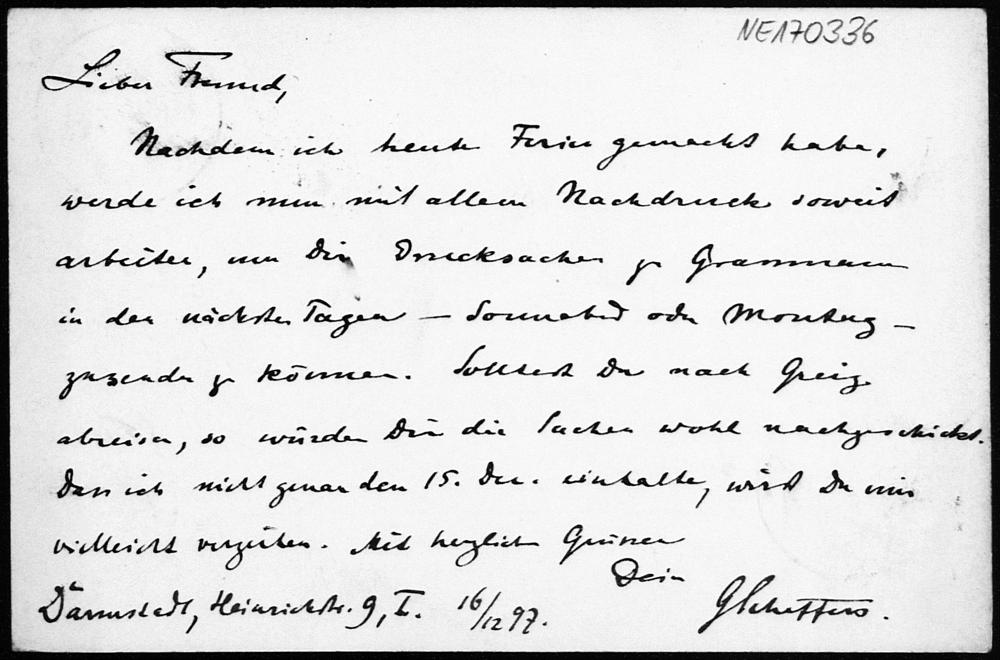 NE170336
Lieber Freund,
Nachdem ich heute Ferien gemacht habe,
werde ich nun mit allem Nachdruck soweit
arbeiten, um Dir Drucksachen zu Grassmann
in den nächsten Tagen – Sonnabend oder Montag –
zusenden zu können. Solltest Du nach Greiz
abreisen, so würden Dir die Sachen wohl nachgeschickt.
Dass ich nicht genau den 15. Dec. einhalte, wirst Du mir
vielleicht verzeihen. Mit herzlichen Grüssen
Dein
Darmstadt, Heinrichstr. 9, I. 16/12 97. GScheffers.